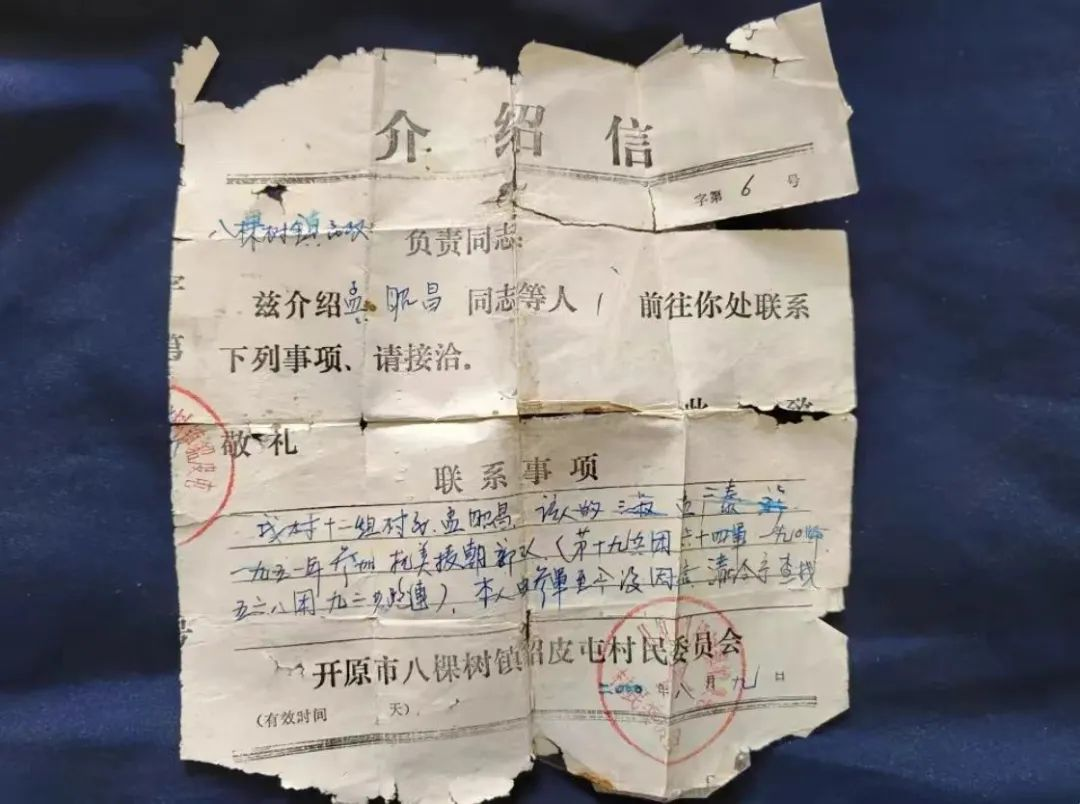 介绍信
字第 6 号
八棵树镇 负责同志:
兹介绍孟昭昌 同志等人 1 前往你处联系
下列事项、请接洽。
此 致
敬礼
联系事项
我村十二组村民孟昭昌, 该人的 三
一九五一年参加抗美援朝部队(第十九兵团六十四军一九〇师
五六八团九二步炮连),本人由参军至今没回信 请给予查找
开原市八棵树镇貂皮屯村民委员会
二000年八月九日
(有效时间 天)